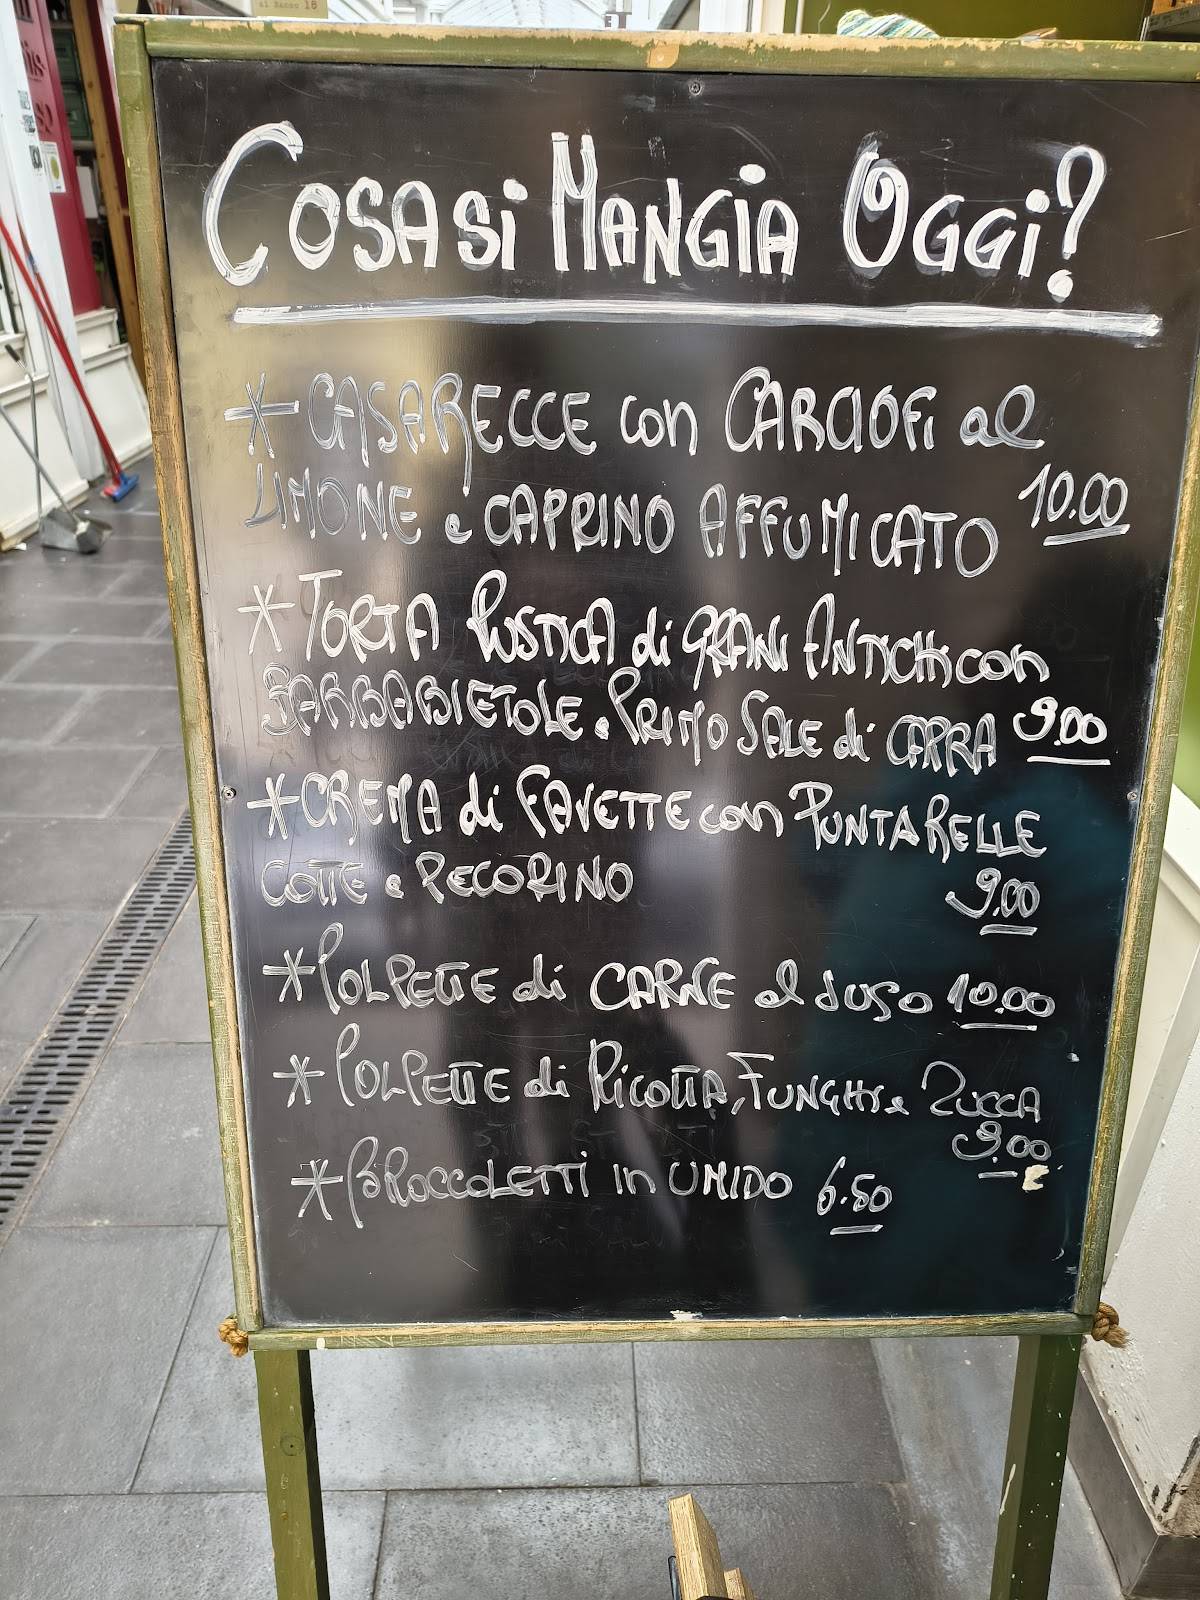 al Banco 16
COSA SI MANGIA OGGI?
* CASARECCE con CARCIOFI al
LIMONE e CAPRINO AFFUMICATO 10.00
* TORTA RUSTICA di GRANI ANTICHI con
BARBABIETOLE e PRIMO SALE di CAPRA 9.00
* CREMA di FAVETTE con PUNTARELLE
COTTE e PECORINO 9.00
* POLPETTE di CARNE al SUGO 10.00
* POLPETTE di RICOTTA, FUNGHI e ZUCCA
9.00
* BROCCOLETTI in UMIDO 6.50